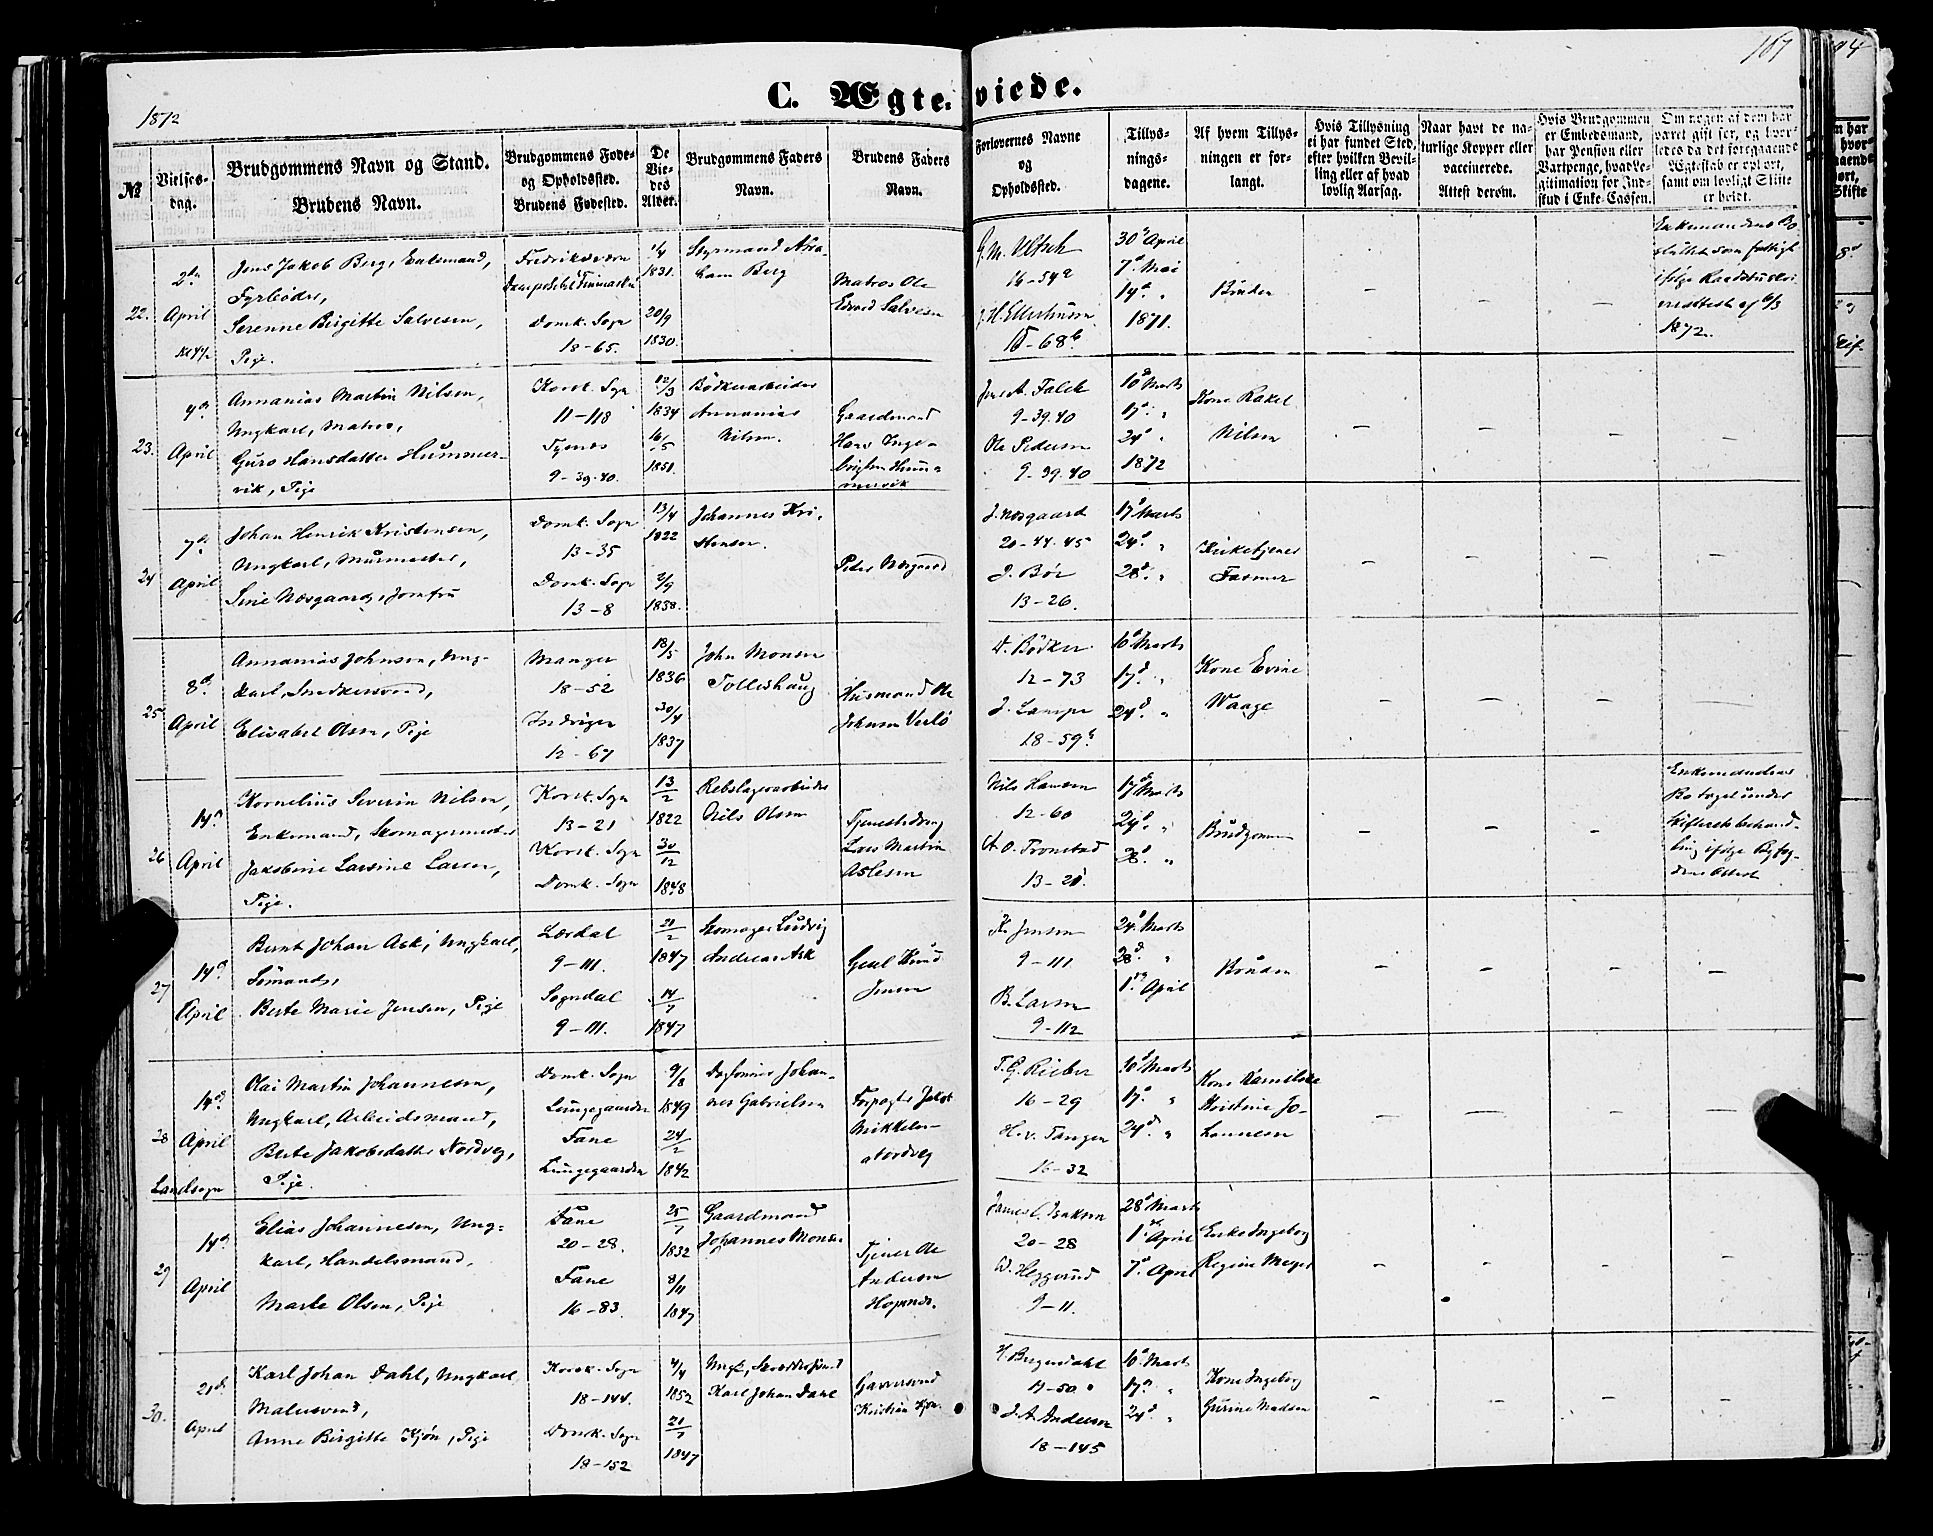 1872
167
C. Ægteviede.
№
Vielses-
dag.
Brudgommens Navn og Stand.
Brudens Navn.
Brudgommens Føde-
og Opholdssted.
Brudens Fødested.
De
Vie-
des
Alder.
Brudgommens Faders
Navn.
Brudens Faders
Navn.
Forlovernes Navne
og
Opholdssted.
Tillys-
nings-
dagene.
Af hvem Tillys-
ningen er for-
langt.
Hvis Tillysning
ei har fundet Sted,
efter hvilken Bevil-
ling eller af hvad
lovlig Aarsag.
Naar havt de na-
turlige Kopper eller
vaccinerede.
Attest derom.
Hvis Brudgommen
er Embedsmand,
har Pension eller
Vartpenge, hvad Le-
gitimation for Ind-
skud i Enke-Cassen.
Om nogen af dem har
været gift før, og hvor-
ledes da det foregaaende
Ægteskab er opløst,
samt om lovligt Skifte
er holdt.
22.
2den
April
Kl 4½
Jens Jakob Berg, Enkemand,
Fyrbøder,
Serenne Birgitte Salvesen,
Pige.
Fredriksværn
Domk. Sogn
18-65.
1831.
20/9
1830.
Styrmand Abra-
ham Berg
Matros Ole
Edvard Salvesen
16-54a
18-68b
30 April
7d Mai
14d "
1871.
Bruden
1872.
23.
4de
April
Annanias Martin Nilsen,
Ungkarl, Matros,
Guro Hansdatter Hummer-
vik, Pige
Korsk. Sogn
11-118
9-39.40.
12/3
1834
16/5
1851.
Bødkerarbeider
Annanias
Nilsen.
Gaardmand
Hans Inge-
brigtsen Hum-
mervik
Jens A. Falck
9-39.40
Ole Pedersen
9-39.40
10d Marts
17d "
24d "
1872
Kone Rakel
Nilsen
24
7de
April
Johan Henrik Kristensen,
Ungkarl, Murmester,
Sirie Næsgaard, Jomfru
Domk. Sogn
13-35
Domk. Sogn
13-8
13/4
1822
2/9
1838.
Johannes Kri-
stensen.
Peder Næsgaard
J. Næsgaard
20-44.45
J. Bør
13-26.
17d Marts
24d "
28d "
Kirketjener
Fasmer
25
8de
April
Annanias Johnsen, Ung-
karl, Snedkersvend,
Elisabet Olsen, Pige
Manger
18-52
Indvigen
12-67
18/5
1836
30/4
1837
John Monsen
Tolleshaug
Husmand Ole
Johnsen
A. Bødker
12-73
J. Lampe
18-59b
10d Marts
17d "
24d "
Kone Evine
Waage
26
14de
April
Kornelius Severin Nilsen,
Enkemand, Skomagermester
Jakobine Larsine Larsen,
Pige.
Korsk. Sogn
13-21
Korsk. Sogn
Domk. Sogn
13/2
1822
30/12
1848
Rebslagerarbeider
Nils Olsen
Tjenestedreng
Lars Martin
Aslesen
Nils Hansen
12-60
A. O. Tronstad
13-21.
17d Marts
24d "
28d "
Brudgommen
Enkemandens
Bo taget under
Skifterets behand-
ling ifølge Byfog-
dens Attest
27
14de
April
Bernt Johan Ask, Ungkarl,
Sømand,
Berte Marie Jensen, Pige
Lærdal
9-111.
Sogndal
9-111.
21/2
1847
14/7
1847
Skomager Ludvig
Andreas Ask
Knud
Jensen
K. Jensen
9-111
B. Larsen
9-112
24. Marts
28d "
1ste April
Bruden
28
14de
April
Landsogn
Olai Martin Johannesen,
Ungkarl, Arbeidsmand,
Berte Jakobsdatter Nordvig,
Pige.
Domk. Sogn
Lungegaarden
Fane
Lungegaarden
9/8
1849
24/2
1842
Johan-
nes Gabrielsen
Forpagter Jakob
Mikkelsen
Nordvig
F. G. Rieber
16-29
H. v. Tangen
16-32
10d Marts
17d "
24d "
Kone
Kristine Jo-
hannesen
29
14de
April
Elias Johannesen, Ung-
karl, Handelsmand,
Marte Olsen, Pige
Fane
20-28.
Fane
16-83.
25/7
1832
8/11
1847
Gaardmand
Johannes Monsen
Tjener Ole
Andersen
20-28
9-11.
28d Marts
1ste April
7d April
Enke Ingeborg
Regine Meyer
30.
21de
April
Karl Johan Dahl, Ungkarl,
Malersvend,
Anne Birgitte Kjøn, Pige
Korsk. Sogn
18-144.
Domk. Sogn
18-152
4/4
1852
21/7
1847
Karl Johan Dahl
Garversvend
Kristian Kjøn
H. Bergendahl
J. A. Andersen
18-145
10. Marts
17d "
24d "
Kone Ingeborg
Gurine Madsen